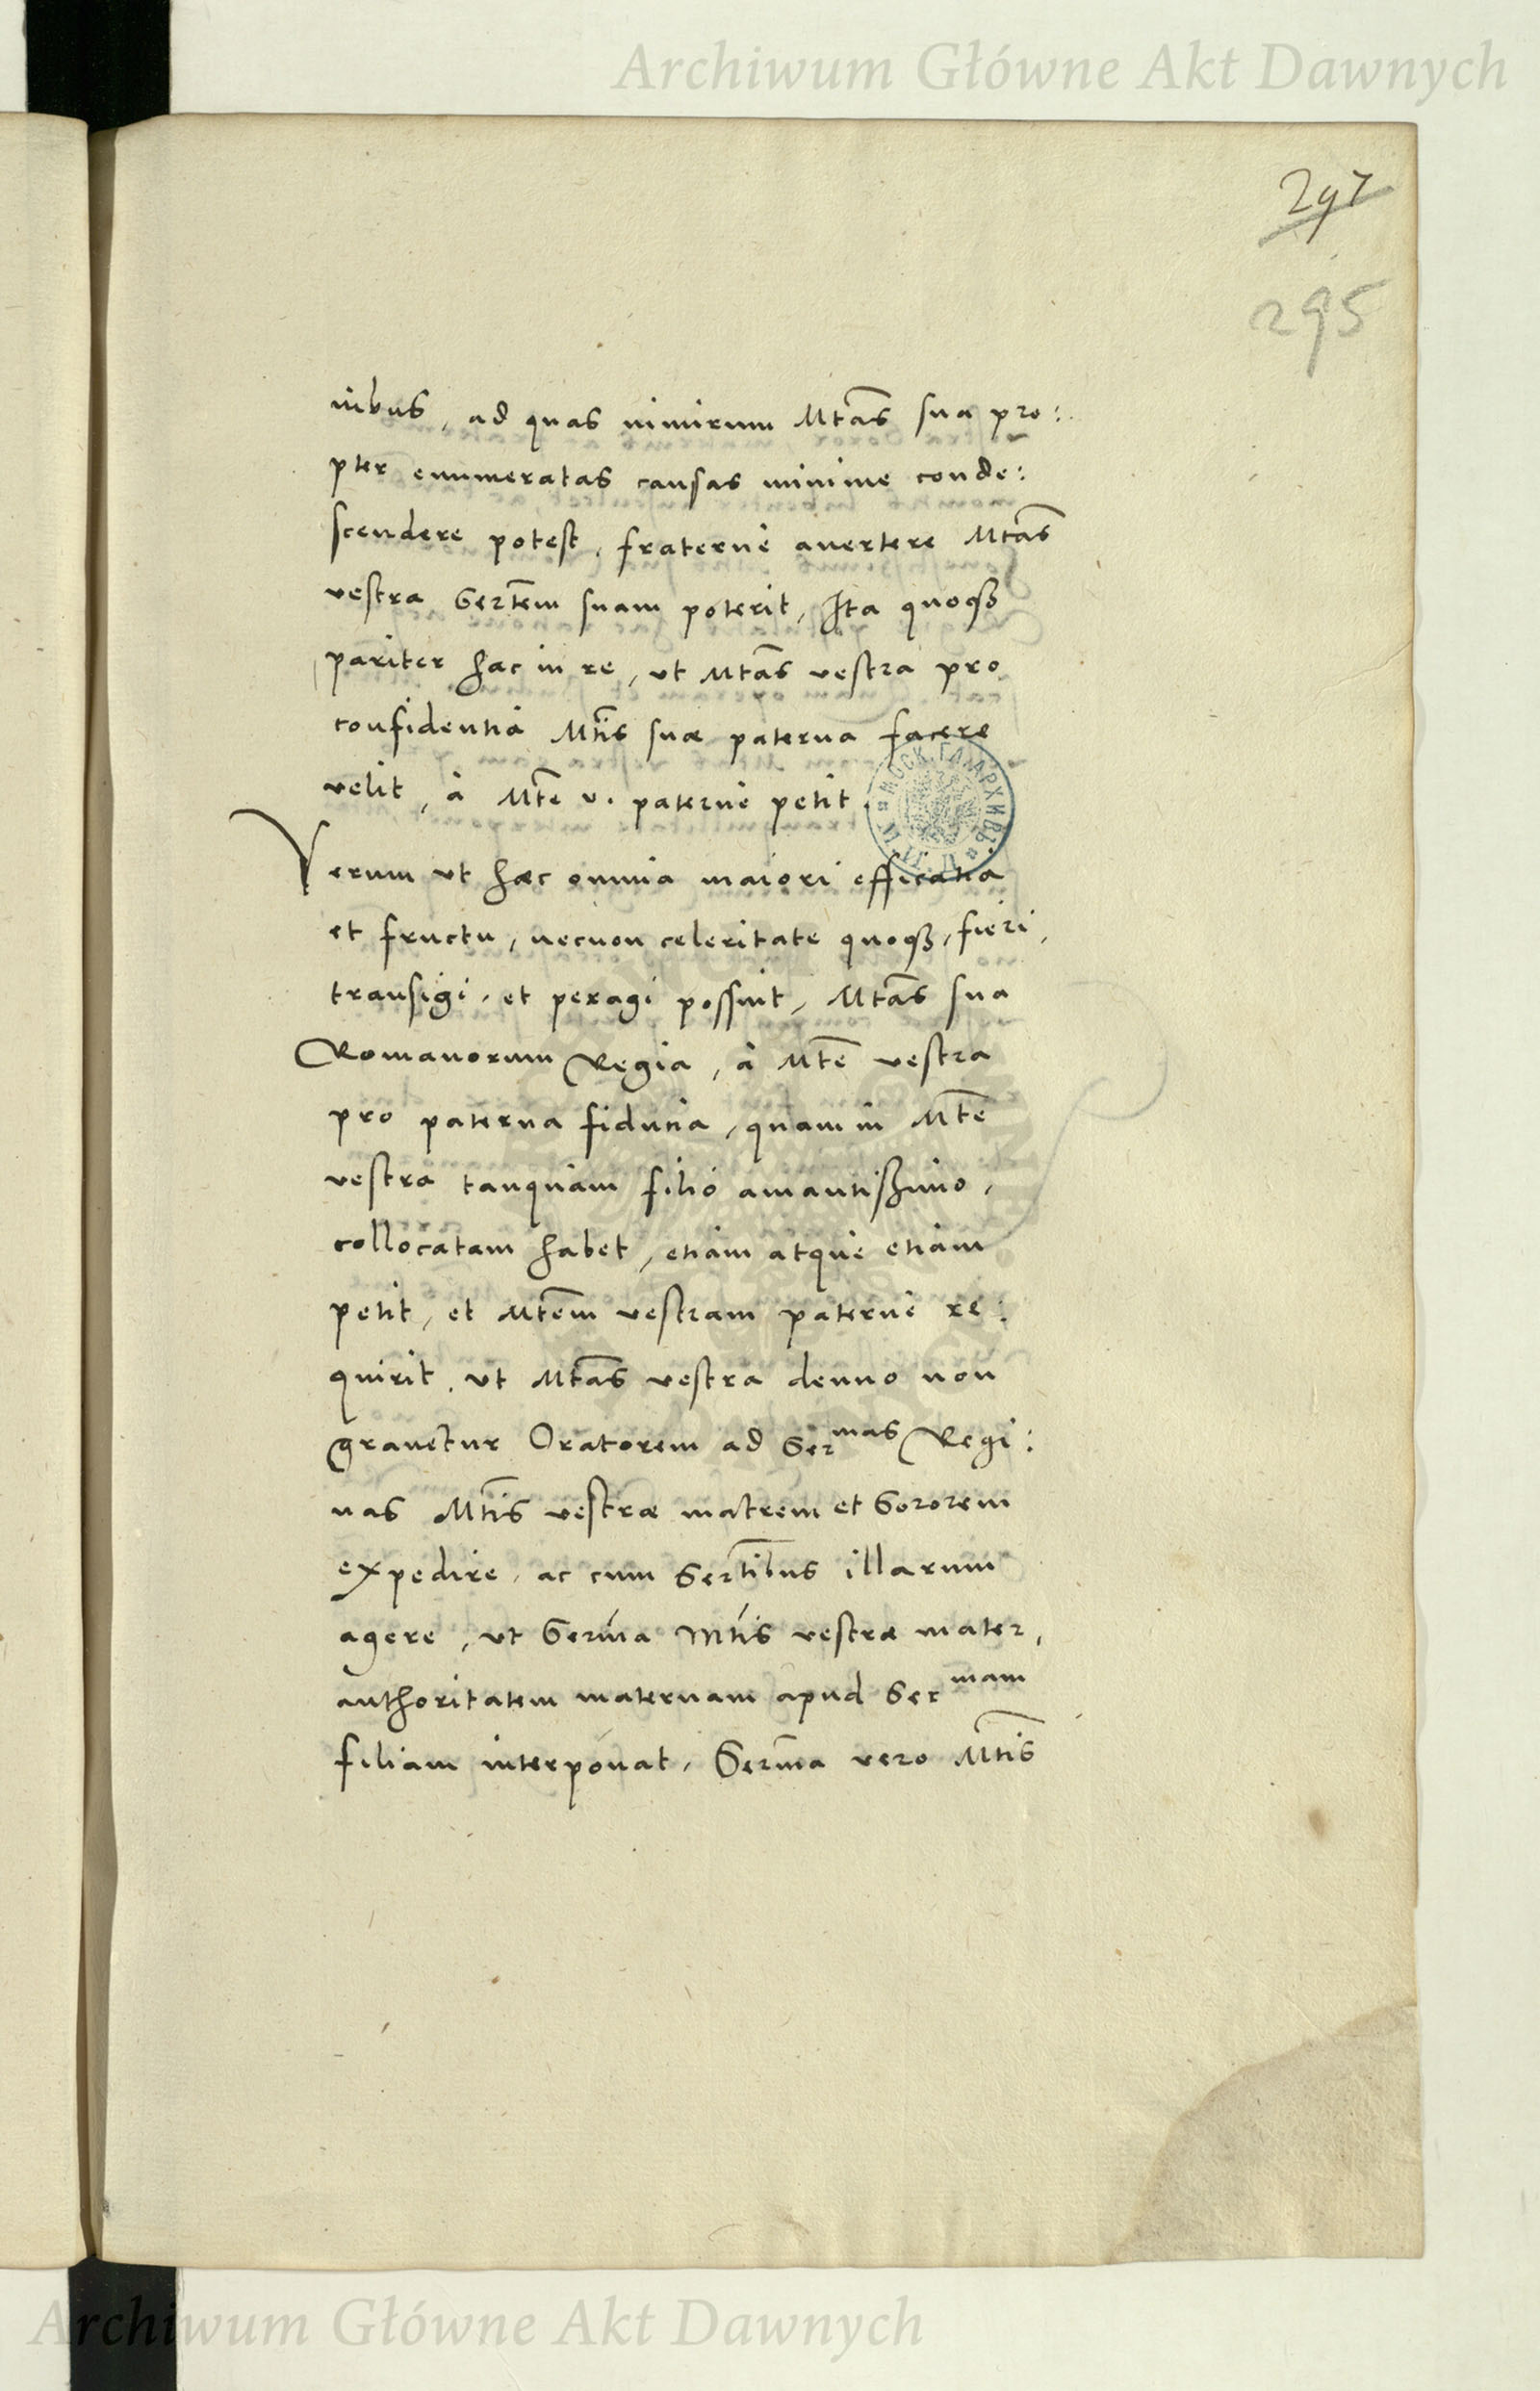 Archiwum Główne Akt Dawnych
297
295
nibus, ad quas nimirum Mtas sua pro:
pter enumeratas causas minime conde:
scendere potest, fraterne avertere Mtas
vestra Sertem suam poterit, Ita quoqȝ
pariter hac in re, ut Mtas vestra pro
confidentia Mtis suæ paterna facere
velit, à Mte v. paterne petit.
Verum ut hæc omnia maiori efficatia
et fructu, necnon celeritate quoqȝ, fieri,
transigi, et peragi possint, Mtas sua
Romanorum Regia, à Mte vestra
pro paterna fiducia, quam in Mte
vestra tanquam filio amantissimo,
collocatam habet, etiam atque etiam
petit, et Mtem vestram paterne re:
quirit, ut Mtas vestra denuo non
gravetur Oratorem ad Sermas Regi:
nas Mtis vestræ matrem et Sororem
expedire, ac cum Sertibus illarum
agere, ut Serma Mtis vestræ mater,
authoritatem maternam apud Sermam
filiam interponat, Serma vero Mtis
Archiwum Główne Akt Dawnych